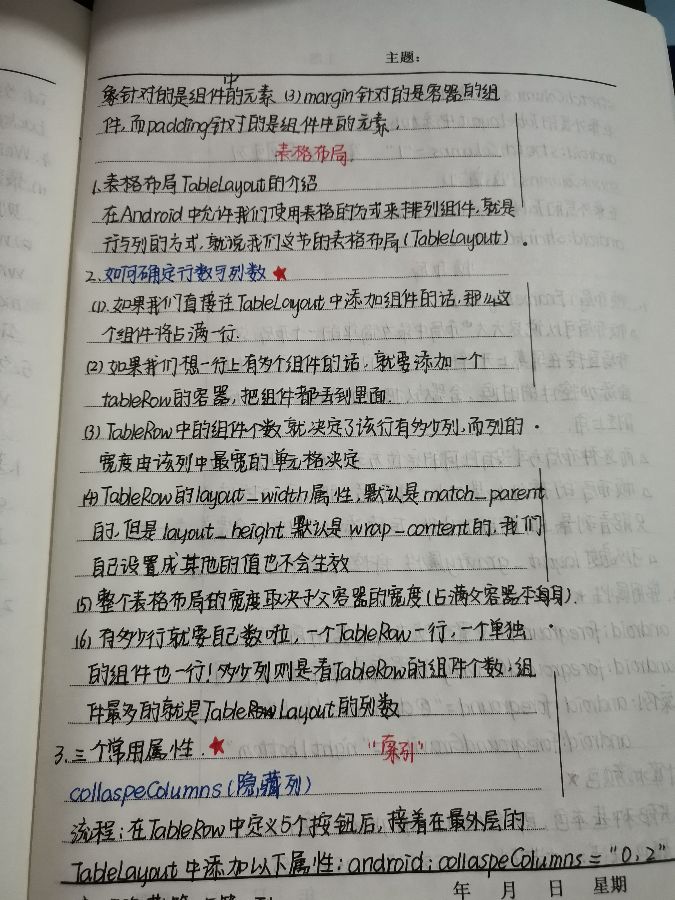 主题:
象针对的是组件中的元素 (3) margin针对的是容器的组
件,而padding针对的是组件中的元素.
表格布局
1.表格布局TableLayout的介绍
在Android中允许我们使用表格的方式来排列组件,就是
行与列的方式,就说我们这节的表格布局(TableLayout).
2.如何确定行数与列数 ★
(1).如果我们直接往TableLayout中添加组件的话,那么这
个组件将占满一行.
(2)如果我们想一行上有多个组件的话,就要添加一个
tableRow的容器,把组件都丢到里面.
(3) TableRow中的组件个数就决定了该行有多少列,而列的
宽度由该列中最宽的单元格决定
(4) TableRow的layout_width属性,默认是match_parent
的,但是layout_height默认是wrap_content的,我们
自己设置成其他的值也不会生效
(5)整个表格布局的宽度取决于父容器的宽度(占满父容器本身).
(6)有多少行就要自己数啦,一个TableRow一行,一个单独
的组件也一行!多少列则是看TableRow的组件个数,组
件最多的就是TableLayout的列数
3.三个常用属性. ★ "索列"
collaspeColumns(隐藏列)
流程:在TableRow中定义5个按钮后,接着在最外层的
TableLayout中添加以下属性:android:collaspeColumns="0,2"
年 月 日 星期